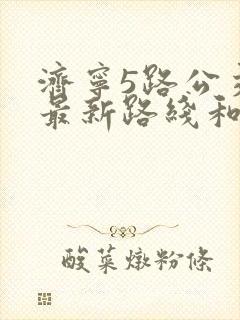 濟寧5路公
最新路綫和
酸菜燉粉條